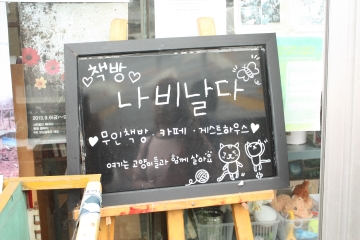 책방
나비날다
무인책방 · 카페 · 게스트하우스
여기는 고양이들과 함께 살아요